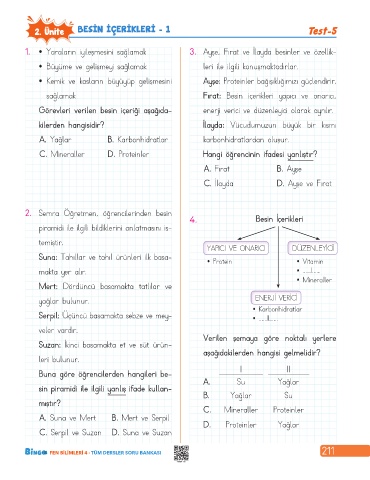 2. Ünite
BESİN İÇERİKLERİ - 1
Test-5
1. • Yaraların iyileşmesini sağlamak
• Büyüme ve gelişmeyi sağlamak
• Kemik ve kasların büyüyüp gelişmesini
sağlamak
Görevleri verilen besin içeriği aşağıda-
kilerden hangisidir?
A. Yağlar B. Karbonhidratlar
C. Mineraller D. Proteinler
2. Semra Öğretmen, öğrencilerinden besin
piramidi ile ilgili bildiklerini anlatmasını is-
temiştir.
Suna: Tahıllar ve tahıl ürünleri ilk basa-
makta yer alır.
Mert: Dördüncü basamakta tatlılar ve
yağlar bulunur.
Serpil: Üçüncü basamakta sebze ve mey-
veler vardır.
Suzan: İkinci basamakta et ve süt ürün-
leri bulunur.
Buna göre öğrencilerden hangileri be-
sin piramidi ile ilgili yanlış ifade kullan-
mıştır?
A. Suna ve Mert B. Mert ve Serpil
C. Serpil ve Suzan D. Suna ve Suzan
3. Ayşe, Fırat ve İlayda besinler ve özellik-
leri ile ilgili konuşmaktadırlar.
Ayşe: Proteinler bağışıklığımızı güçlendirir.
Fırat: Besin içerikleri yapıcı ve onarıcı,
enerji verici ve düzenleyici olarak ayrılır.
İlayda: Vücudumuzun büyük bir kısmı
karbonhidratlardan oluşur.
Hangi öğrencinin ifadesi yanlıştır?
A. Fırat B. Ayşe
C. İlayda D. Ayşe ve Fırat
4. Besin İçerikleri
YAPICI VE ONARICI DÜZENLEYİCİ
• Protein • Vitamin
• ......I......
• Mineraller
ENERJİ VERİCİ
• Karbonhidratlar
• ......II......
Verilen şemaya göre noktalı yerlere
aşağıdakilerden hangisi gelmelidir?
I II
A. Su Yağlar
B. Yağlar Su
C. Mineraller Proteinler
D. Proteinler Yağlar
BinGo FEN BİLİMLERİ 4 - TÜM DERSLER SORU BANKASI
211